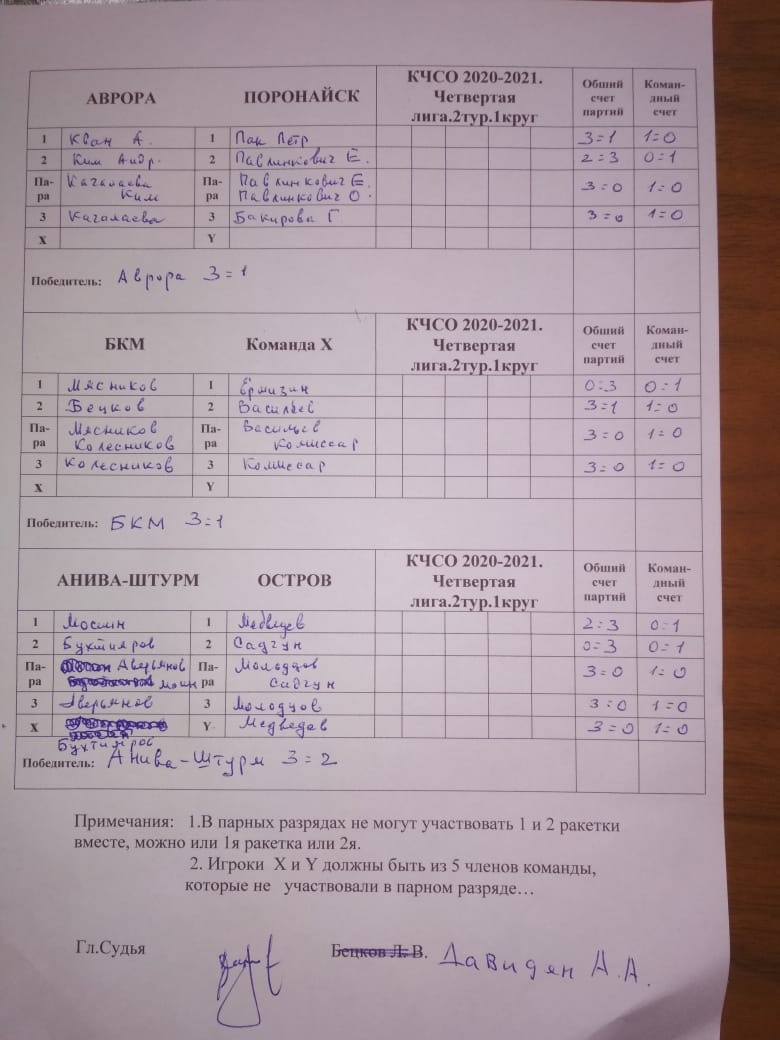 АВРОРА ПОРОНАЙСК КЧСО 2020-2021. Четвертая лига.2тур.1круг Общий счет партий Коман-дный счет
1 Кван А. 1 Пак Петр 3=1 1=0
2 Ким Андр. 2 Павлинкович Е. 2=3 0=1
Па-ра Кагалаева Ким Па-ра Павлинкович Е. Павлинкович О. 3=0 1=0
3 Кагалаева 3 Бакирова Г 3=0 1=0
X Y
Победитель: Аврора 3=1
БКМ Команда X КЧСО 2020-2021. Четвертая лига.2тур.1круг Общий счет партий Коман-дный счет
1 Мясников 1 Ёрмизин 0=3 0=1
2 Бецков 2 Васильев 3=1 1=0
Па-ра Мясников Колесников Па-ра Васильев Комиссар 3=0 1=0
3 Колесников 3 Комиссар 3=0 1=0
X Y
Победитель: БКМ 3=1
АНИВА-ШТУРМ ОСТРОВ КЧСО 2020-2021. Четвертая лига.2тур.1круг Общий счет партий Коман-дный счет
1 1 Медведев 2=3 0=1
2 Бухтияров 2 Садгун 0=3 0=1
Па-ра Аверьянов Па-ра Молодцов Садгун 3=0 1=0
3 Аверьянов 3 Молодцов 3=0 1=0
X Бухтияров Y Медведев 3=0 1=0
Победитель: Анива-Штурм 3=2
Примечания: 1.В парных разрядах не могут участвовать 1 и 2 ракетки
вместе, можно или 1я ракетка или 2я.
2. Игроки X и Y должны быть из 5 членов команды,
которые не участвовали в парном разряде…
Гл.Судья Бецков Л. В. Давидян А.А.